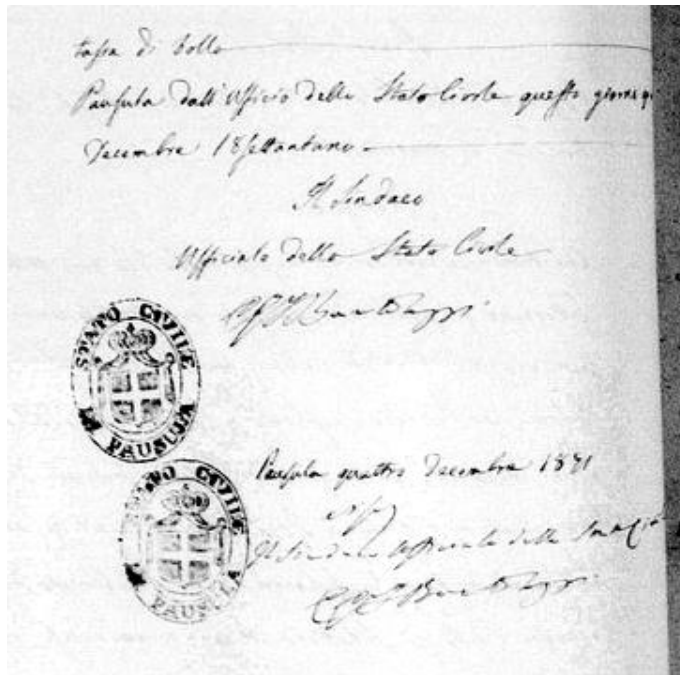 tassa di bollo
Pausula dall'Ufficio dello Stato Civile questo giorno
Decembre 18settantuno
Il Sindaco
Ufficiale dello Stato Civile
STATO CIVILE
DI PAUSULA
Pausula quattro Decembre 1871
STATO CIVILE
DI PAUSULA
Il Sindaco Ufficiale dello